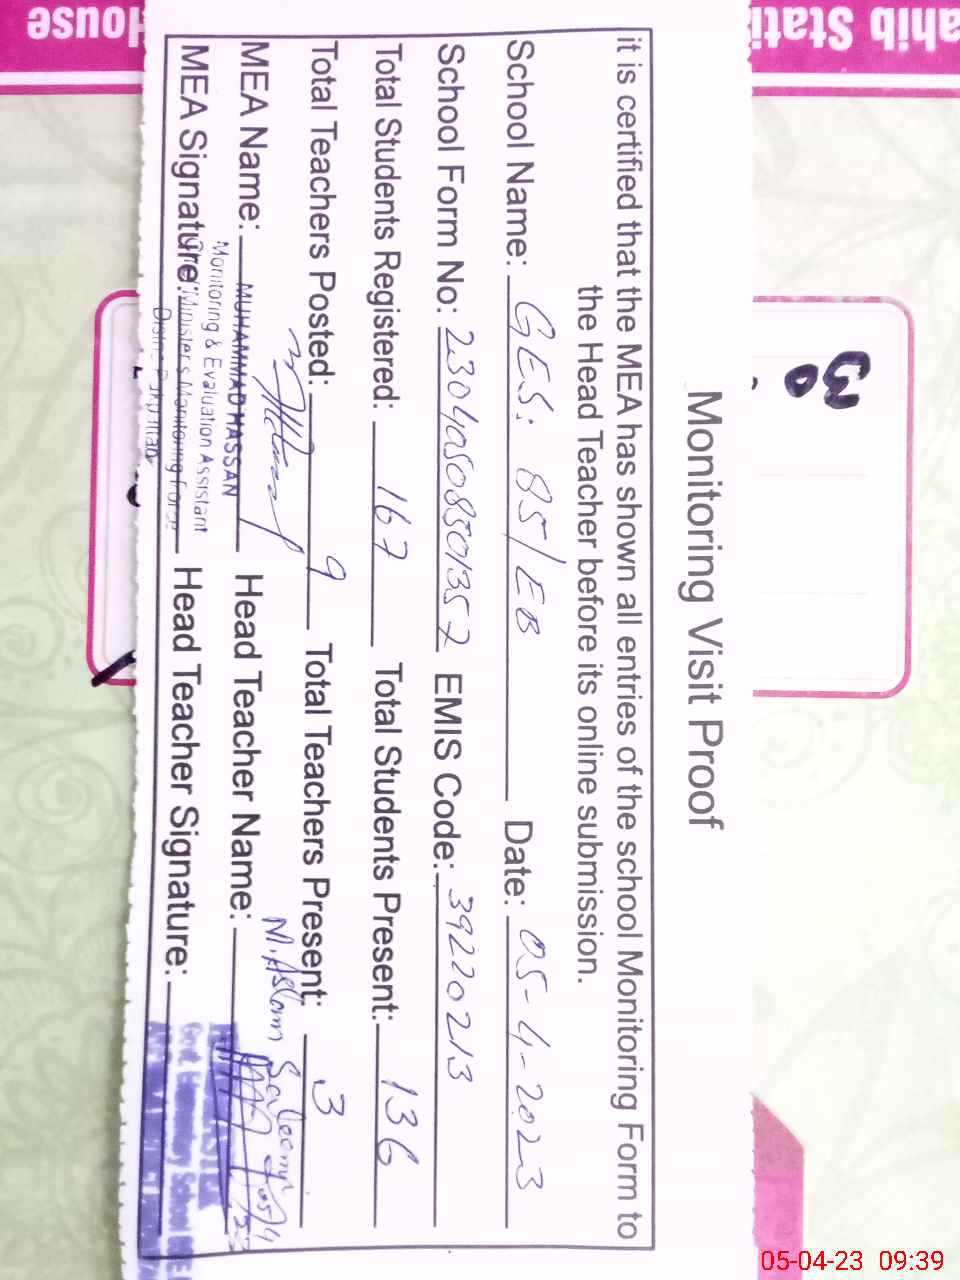 Monitoring Visit Proof
it is certified that the MEA has shown all entries of the school Monitoring Form to
the Head Teacher before its online submission.
School Name: GES: 85/EB Date: 05-4-2023
School Form No: 23040508501357 EMIS Code: 39220213
Total Students Registered: 167 Total Students Present: 136
Total Teachers Posted: 9 Total Teachers Present: 3
MEA Name: MUHAMMAD HASSAN Head Teacher Name: M. Aslam Saleemi
Monitoring & Evaluation Assistant
MEA Signature: Chief Minister's Monitoring Force Head Teacher Signature:
Govt. Elementary School
House
ahib Stati
05-04-23 09:39